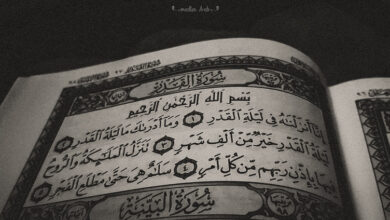 سُورَةُ الْقَدْرِ
بِسْمِ اللَّهِ الرَّحْمَٰنِ الرَّحِيمِ
إِنَّا أَنزَلْنَاهُ فِي لَيْلَةِ الْقَدْرِ ١ وَمَا أَدْرَاكَ مَا لَيْلَةُ الْقَدْرِ ٢
لَيْلَةُ الْقَدْرِ خَيْرٌ مِّنْ أَلْفِ شَهْرٍ ٣ تَنَزَّلُ الْمَلَائِكَةُ وَالرُّوحُ
فِيهَا بِإِذْنِ رَبِّهِم مِّن كُلِّ أَمْرٍ ٤ سَلَامٌ هِيَ حَتَّىٰ مَطْلَعِ الْفَجْرِ ٥
سُورَةُ الْبَيِّنَةِ